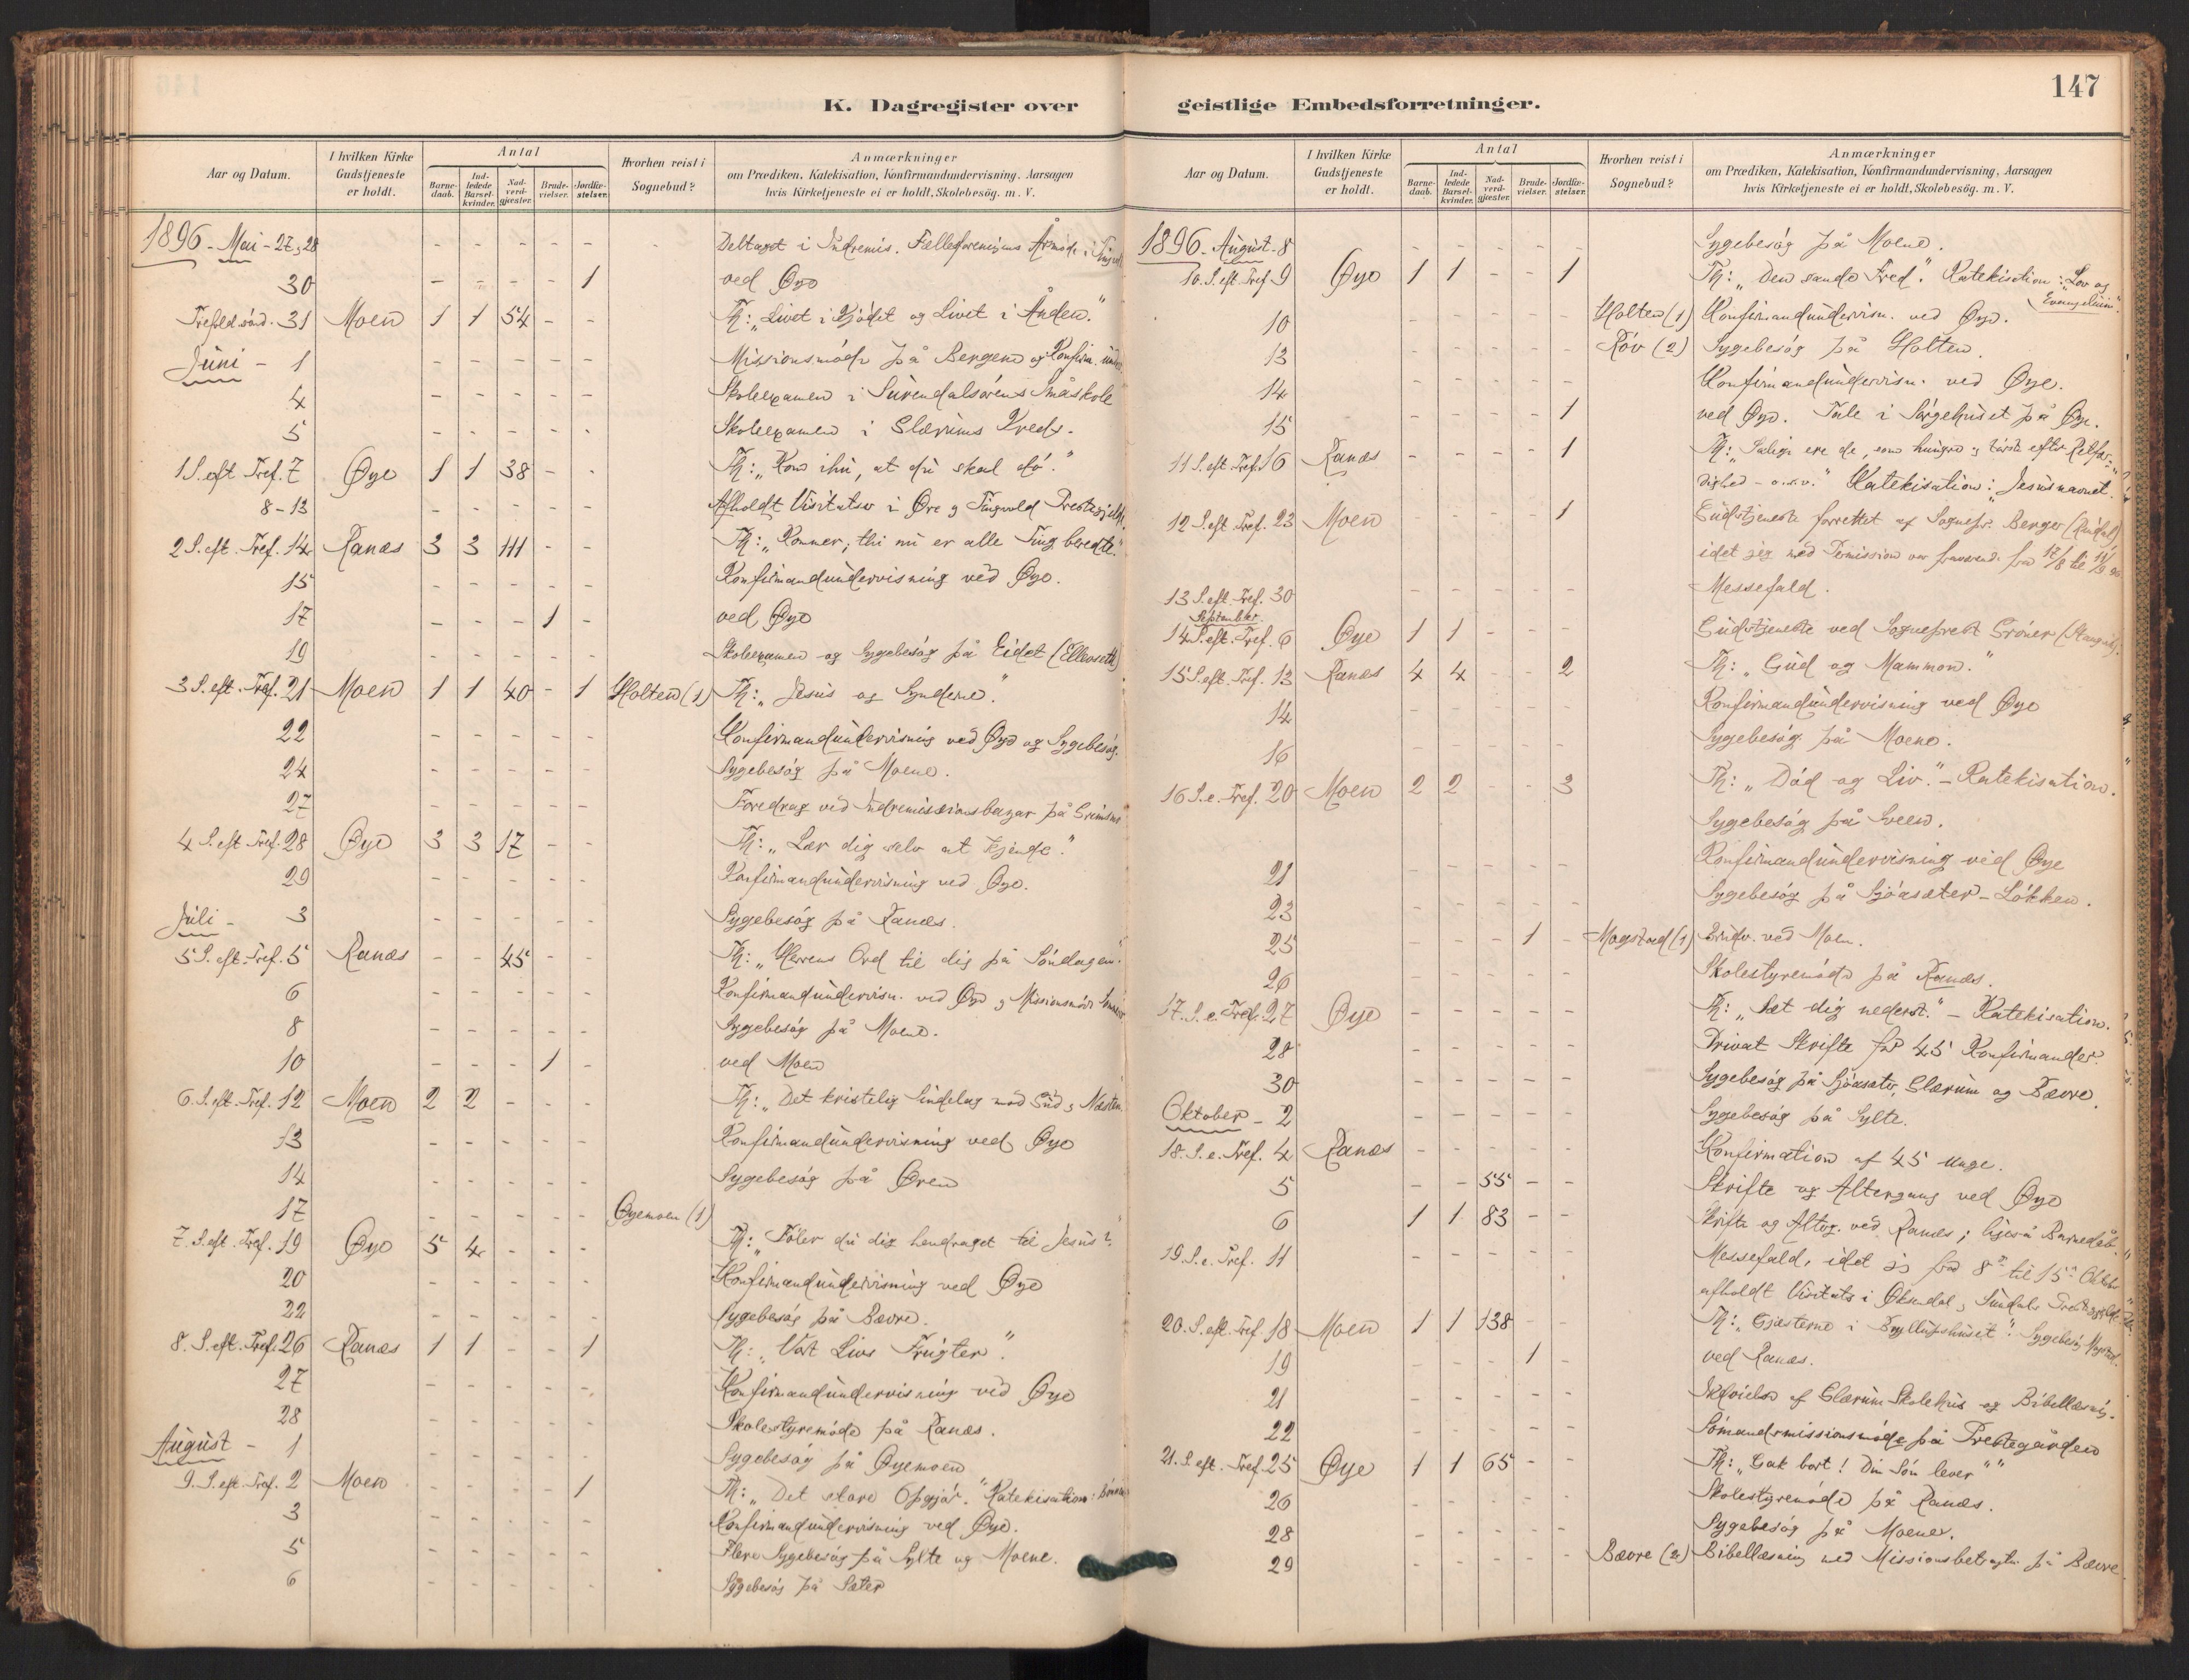 K. Dagregister over
Aar og Datum.
I hvilken Kirke Gudstjeneste er holdt.
Antal
Barnedaab.
Indledede Barselkvinder.
Nadverdgjæster.
Brudevielser.
Jordfæstelser.
Hvorhen reist i Sognebud?
Anmærkninger
om Prædiken, Katekisation, Konfirmandundervisning, Aarsagen
hvis Kirketjeneste ei er holdt, Skolebesøg. m. V.
1896 - Mai - 27, 28 - - - - - Deltaget i Indremis. Fællesforeningens Årsmøde i
30 - - - - 1 ved Øye
Trefold. sønd. 31 Moen 1 1 54 - - Th: „Livet i Kjødet og Livet i Ånden."
Juni - 1 - - - - - Missionsmøde på Bergem og Konfirm.
4 - - - - - Skoleexamen i Surendalsørens Småskole
5 - - - - - Skoleexamen i Glærums Kreds.
1 S. eft Tref. 7 Øye 1 1 38 - - Th: „Kom ihu, at du skal dø."
8-13 - - - - - Afholdt Visitats i Øre og Tingvold Prestegjeld.
2 S. eft. Tref. 14 Ranæs 3 3 111 - - Th: „Kommer; thi nu er alle Ting beredte."
15 - - - - - Konfirmandundervisning ved Øye.
17 - - - 1 - ved Øye
19 - - - - - Skoleexamen og Sygebesøg på Eidet (Ellevseth)
3 S. eft. Tref. 21 Moen 1 1 40 - 1 Holten (1) Th: „Jesus og Synderne".
22 - - - - - Konfirmandundervisning ved Øye og Sygebesøg.
24 - - - - - Sygebesøg på Moene.
27 - - - - - Foredrag ved Indremissionsbazar på
4 S. eft Tref. 28 Øye 3 3 17 - - Th: „Lær dig selv at kjende."
29 - - - - - Konfirmandundervisning ved Øye.
Juli - 3 - - - - - Sygebesøg på Ranæs.
5 S. eft. Tref. 5 Ranæs - - 45 - - Th: „Herrens Ord til dig på Søndagen".
6 - - - - - Konfirmandundervisn. ved Øye og Missionsmøde
8 - - - - - Sygebesøg på Moene.
10 - - - 1 - ved Moen
6. S. eft. Tref. 12 Moen 2 2 - - - Th: „Det kristelig Sindelag mod Gud og Næsten
13 - - - - - Konfirmandundervisning ved Øye
14 - - - - - Sygebesøg på Øren
17 - - - - - Øyemoen (1)
7. S. eft. Tref. 19 Øye 5 4 - - - Th: „Føler du dig hendraget til Jesus?"
20 - - - - - Konfirmandundervisning ved Øye
22 - - - - - Sygebesøg på Bævre.
8. S. eft. Tref. 26 Ranæs 1 1 - - 1 Th: „Vort Livs Frugter".
27 - - - - - Konfirmandundervisning ved Øye
28 - - - - - Skolestyremøde på Ranæs.
August - 1 - - - - - Sygebesøg på Øyemoen
9. S. eft. Tref. 2 Moen - - - - 1 Th: „Det store Opgjør." Katekisation:
3 - - - - - Konfirmandundervisning ved Øye.
5 - - - - - Flere Sygebesøg på Sylte og Moene.
6 - - - - - Sygebesøg på Sæter
147
geistlige Embedsforretninger.
Aar og Datum.
I hvilken Kirke Gudstjeneste er holdt.
Antal
Barnedaab.
Indledede Barselkvinder.
Nadverdgjæster.
Brudevielser.
Jordfæstelser.
Hvorhen reist i Sognebud?
Anmærkninger
om Prædiken, Katekisation, Konfirmandundervisning, Aarsagen
hvis Kirketjeneste ei er holdt, Skolebesøg. m. V.
1896. August - 8 - - - - - Sygebesøg på Moene.
10. S. eft. Tref. 9 Øye 1 1 - - 1 Th: „Den sande Fred". Katekisation: „Lov og Evangelium".
10 - - - - - Holten (1) Konfirmandundervisn. ved Øye.
13 - - - - - Røv (2) Sygebesøg på Holten.
14 - - - - - Konfirmandundervisn. ved Øye.
15 - - - - 1 ved Øye. Tale i Sørgehuset på Øye.
11 S. eft. Tref. 16 Ranæs - - - - 1 Th: „Salige ere de, som hungre og tørste efter Retfær-
dighed - o.s.v." Katekisation: „Jesusnavnet.
12 S. eft. Tref. 23 Moen - - - - 1 Gudstjeneste forrettet af Sognepr. Berger
idet jeg med Permission var fraværende fra 17/8 til
13 S. eft. Tref. 30 - - - - - Messefald.
September.
14 S. eft. Tref. 6 Øye 1 1 - - - Gudstjeneste ved Sogneprest Grøner
15 S. eft. Tref. 13 Ranæs 4 4 - - 2 Th: „Gud og Mammon."
14 - - - - - Konfirmandundervisning ved Øye
16 - - - - - Sygebesøg på Moene.
16 S. e. Tref. 20 Moen 2 2 - - 3 Th: „Død og Liv." - Katekisation.
Sygebesøg på Sveen.
21 - - - - - Konfirmandundervisning ved Øye
23 - - - - - Sygebesøg på Sjøasæter - Løkken.
25 - - - 1 - Mogstad (1) Brudev. ved Moen.
26 - - - - - Skolestyremøde på Ranæs.
17. S. e. Tref. 27 Øye - - - - - Th: „Sæt dig nederst." - Katekisation.
28 - - - - - Privat Skrifte for 45 Konfirmander.
30 - - - - - Sygebesøg på Sjøasæter, Glærum og Bævre.
Oktober - 2 - - - - - Sygebesøg på Sylte.
18. S. e. Tref. 4 Ranæs - - - - - Konfirmation af 45 Unge.
5 - - 55 - - Skrifte og Altergang ved Øye
6 1 1 83 - - Skrifte og Alterg. ved Ranæs; ligeså Barnedåb.
19. S. e. Tref. 11 - - - - - Messefald, idet jeg fra 8de til 15de Oktober
afholdt Visitats i Øksendal og Sundals Prestegjeld.
20. S. eft. Tref. 18 Moen 1 1 138 - - Th: „Gjæsterne i Bryllupshuset". Sygebesøg Mogstad.
19 - - - 1 - ved Ranæs.
21 - - - - - Indvielse af Glærum Skolehus og Bibellæsning.
22 - - - - - Sømandsmissionsmøde på Prestegården
21. S. eft. Tref. 25 Øye 1 1 65 - - Th: „Gak bort! Din Søn lever""
26 - - - - - Skolestyremøde på Ranæs.
28 - - - - - Sygebesøg på Moene.
29 - - - - - Bævre (2) Bibellæsning med Missionsbetragtn. på Bævre.